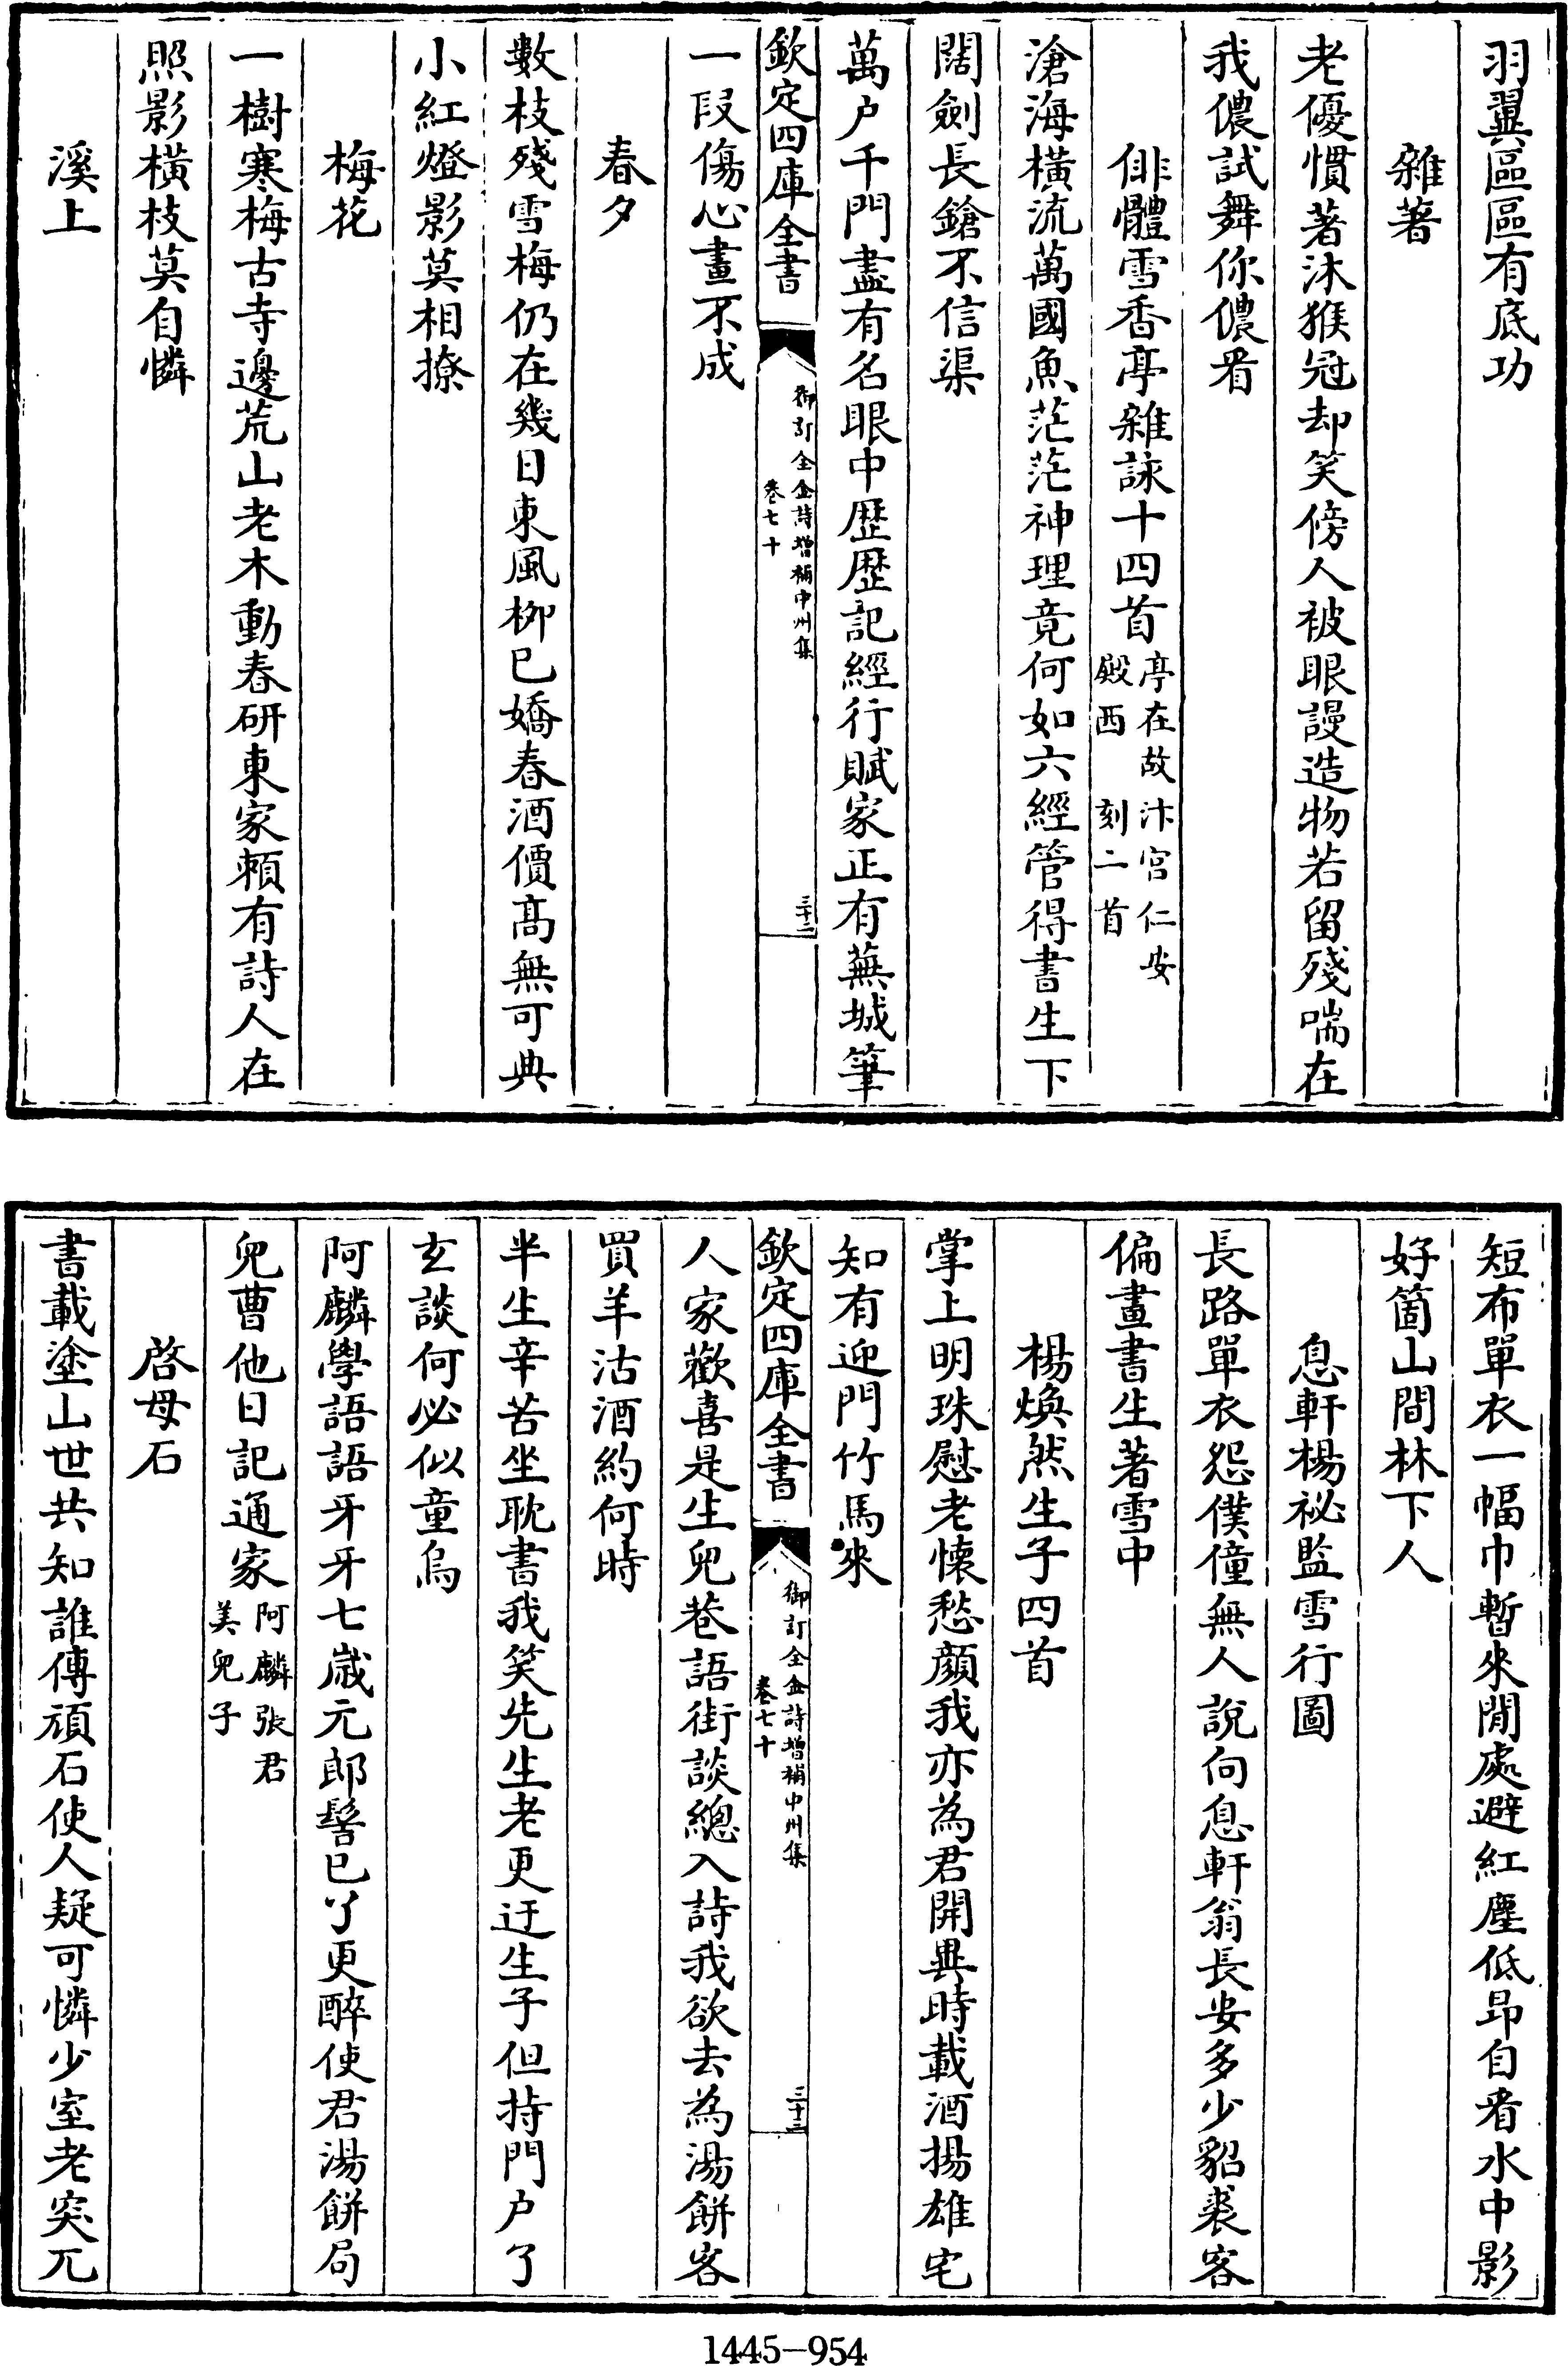 羽翼區區有底功
雜著
老優慣著沐猴冠却笑傍人被眼謾造物若留殘喘在
我儂試舞你儂看
俳體雪香亭雜詠十四首亭在故汴宫仁安
殿西刻二首
滄海横流萬國魚茫茫神理竟何如六經管得書生下
闊劍長鎗不信渠
萬户千門盡有名眼中歴歴記經行賦家正有蕪城筆
欽定四庫全書
御訂全金詩增補中州集
卷七十
三十二
一段傷心畫不成
春夕
數枝殘雪梅仍在幾日東風栁已嬌春酒價髙無可典
小紅燈影莫相撩
梅花
一樹寒梅古寺邊荒山老木動春研東家賴有詩人在
照影横枝莫自憐
溪上
短布單衣一幅巾暫來閒處避紅塵低昂自看水中影
好箇山間林下人
息軒楊祕監雪行圖
長路單衣怨僕僮無人說向息軒翁長安多少貂裘客
偏畫書生著雪中
楊煥然生子四首
掌上明珠慰老懷愁顔我亦為君開異時載酒揚雄宅
知有迎門竹馬來
欽定四庫全書
御訂全金詩增補中州集
卷七十
三十三
人家歡喜是生兒巷語街談總入詩我欲去為湯餅客
買羊沽酒約何時
半生辛苦坐耽書我笑先生老更迂生子但持門户了
玄談何必似童烏
阿麟學語語牙牙七歲元郎髻已丫更醉使君湯餅局
兒曹他日記通家阿麟張君
美兒子
啓母石
書載塗山世共知誰傳頑石使人疑可憐少室老突兀
1445-954